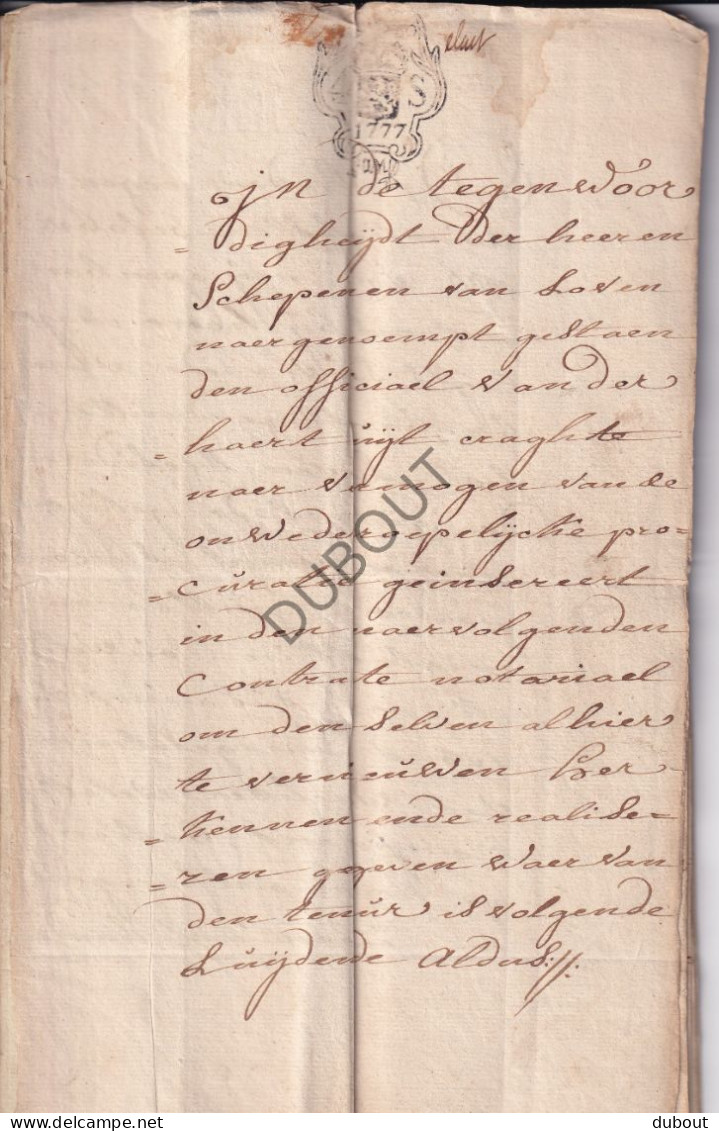 S
1777
In de tegenwóor
= digheijdt der heeren
Schepenen van Loven
naergenoempt gestaen
den officiael van der
= haert uijt craghte
naer vermogen van de
onwederoepelijcke pro=
= curatie geinsereert
in den naervolgenden
Contracte notariael
om den selven alhier
te vernieuwen her
= kennen ende realise=
= ren gegeven waer van
den tenur is volgende
Luijdende Aldus://:
DUBOUT
delcampe.net
dubout